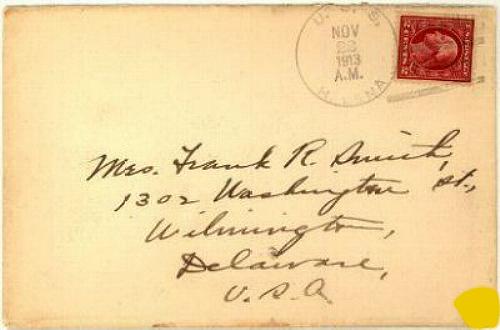 U. S. S.
NOV
22
1913
A.M.
HELENA
Mrs. Frank R. Smith,
1302 Washington St.,
Wilmington,
Delaware,
U.S.A.